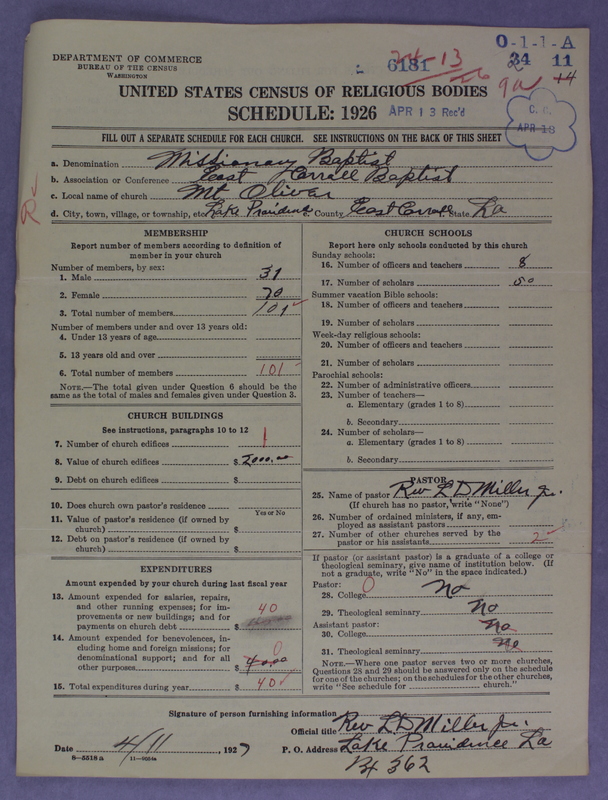 DEPARTMENT OF COMMERCE
BUREAU OF THE CENSUS
WASHINGTON
6181
13
O-1-1-A
34 11
+4
UNITED STATES CENSUS OF RELIGIOUS BODIES
SCHEDULE: 1926
APR 13 Rec'd
C. R.
APR 13
FILL OUT A SEPARATE SCHEDULE FOR EACH CHURCH. SEE INSTRUCTIONS ON THE BACK OF THIS SHEET
a. Denomination Missionary Baptist
b. Association or Conference East Carroll Baptist
c. Local name of church Mt Oliver
d. City, town, village, or township, etc. Lake Providence County East Carroll State La
R
MEMBERSHIP
Report number of members according to definition of member in your church
Number of members, by sex:
1. Male 31
2. Female 70
3. Total number of members 101
Number of members under and over 13 years old:
4. Under 13 years of age
5. 13 years old and over
6. Total number of members 101
NOTE.—The total given under Question 6 should be the
same as the total of males and females given under Question 3.
CHURCH BUILDINGS
See instructions, paragraphs 10 to 12
7. Number of church edifices 1
8. Value of church edifices $ 2000.00
9. Debt on church edifices $
10. Does church own pastor's residence
Yes or No
11. Value of pastor's residence (if owned by
church) $
12. Debt on pastor's residence (if owned by
church) $
EXPENDITURES
Amount expended by your church during last fiscal year
13. Amount expended for salaries, repairs,
and other running expenses; for im-
provements or new buildings; and for
payments on church debt $ 40
14. Amount expended for benevolences, in-
cluding home and foreign missions; for
denominational support; and for all
other purposes $ 40.00 0
15. Total expenditures during year $ 40
CHURCH SCHOOLS
Report here only schools conducted by this church
Sunday schools:
16. Number of officers and teachers 8
17. Number of scholars 50
Summer vacation Bible schools:
18. Number of officers and teachers
19. Number of scholars
Week-day religious schools:
20. Number of officers and teachers
21. Number of scholars
Parochial schools:
22. Number of administrative officers
23. Number of teachers—
a. Elementary (grades 1 to 8)
b. Secondary
24. Number of scholars—
a. Elementary (grades 1 to 8)
b. Secondary
PASTOR
25. Name of pastor Rev L D Miller Jr.
(If church has no pastor, write "None")
26. Number of ordained ministers, if any, em-
ployed as assistant pastors
27. Number of other churches served by the
pastor or his assistants 2
If pastor (or assistant pastor) is a graduate of a college or
theological seminary, give name of institution below. (If
not a graduate, write "No" in the space indicated.)
Pastor: 0
28. College No
29. Theological seminary No
Assistant pastor:
30. College No
31. Theological seminary No
NOTE.—Where one pastor serves two or more churches,
Questions 28 and 29 should be answered only on the schedule
for one of the churches; on the schedules for the other churches,
write "See schedule for church."
Signature of person furnishing information Rev L D Miller Jr.
Official title
Date 4/11, 1927 P. O. Address Lake Providence La
Bx 362
8—5518 a 11—9054a